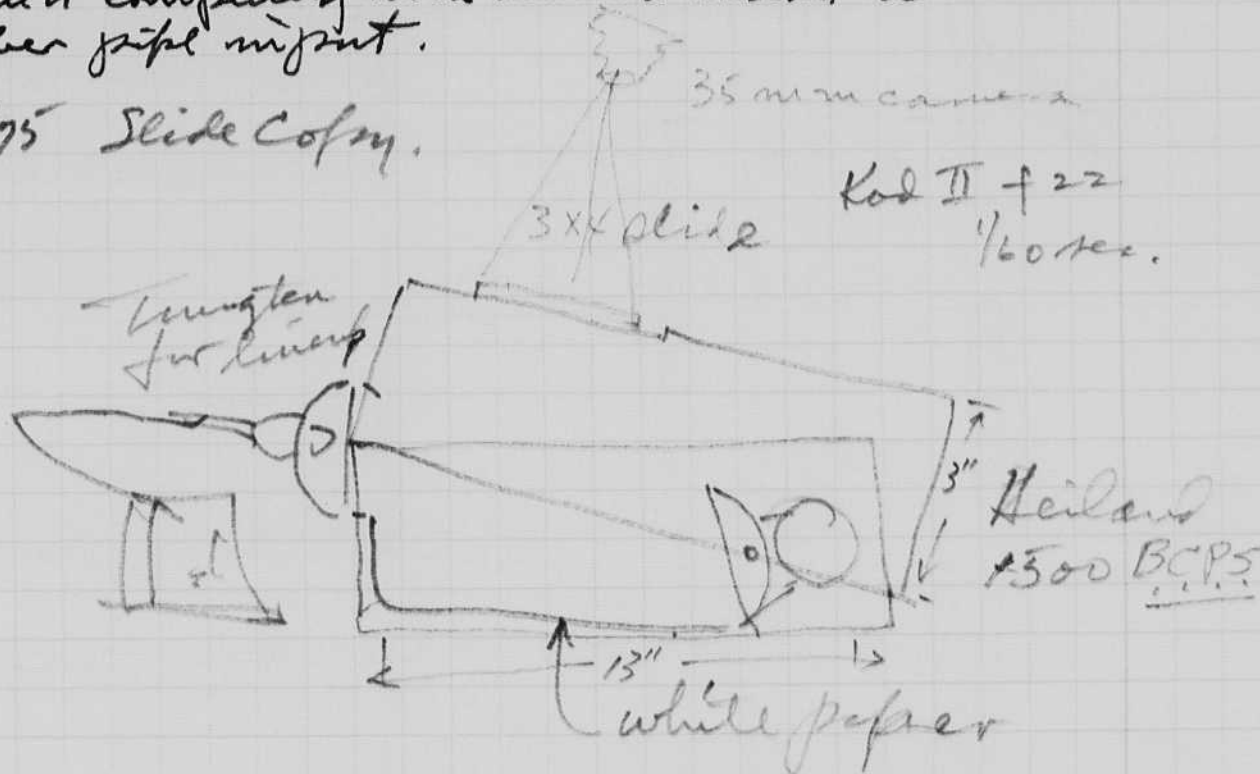 pipe input.
75 Slide Copy.
35 mm camera
Kod II f 22
1/60 sec.
3x4 slide
Tungsten
for lineup
3"
Heiland
1500 BCPS
13"
white paper